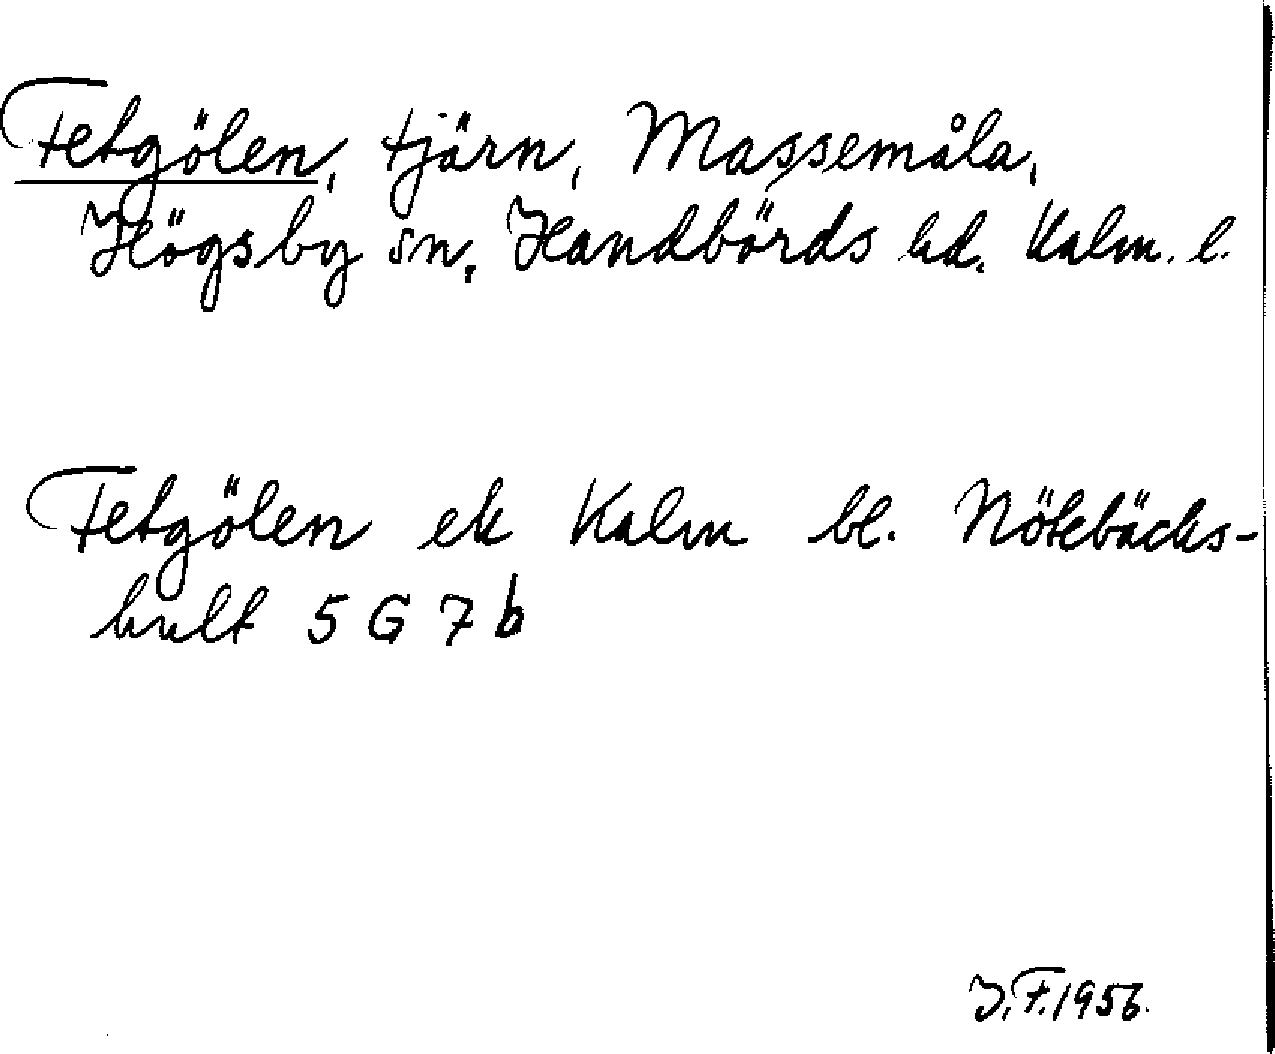 Fetgölen, tjärn, Massemåla,
Högsby sn, Handbörds hd. Kalm. l.
Fetgölen ek Kalm bl. Nötebäcks-
hult 5 G 7 b
J. F. 1956.